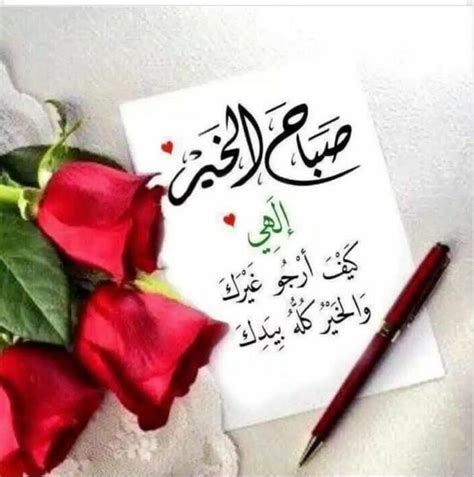 صَبَاحَ الخَيْر
إلَهِي
كَيْفَ أَرْجُو غَيْرَكَ
وَالخَيْرُ كُلُّهُ بِيَدِكَ